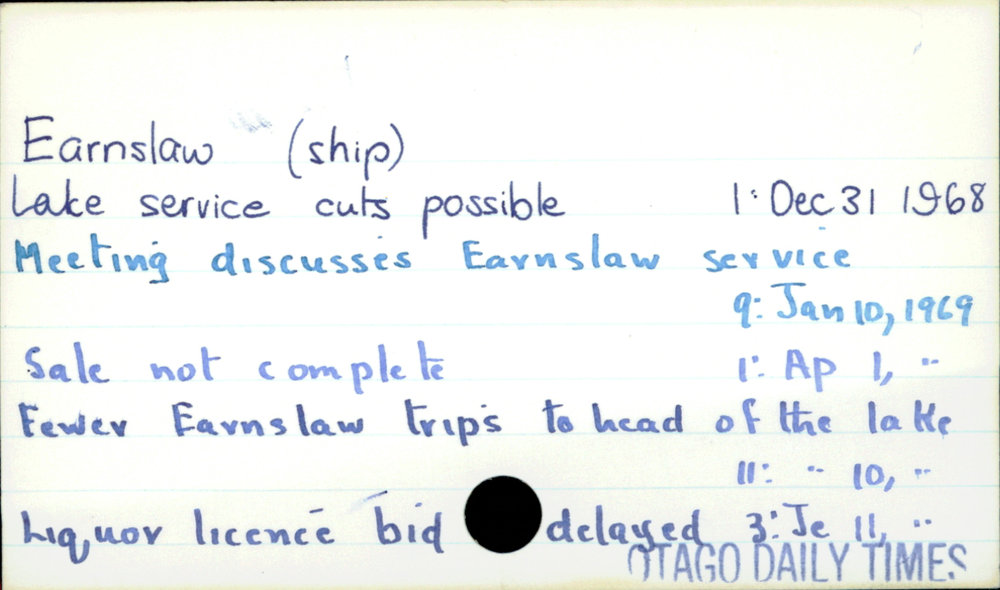 Earnslaw (ship)
Lake service cuts possible 1: Dec 31 1968
Meeting discusses Earnslaw service
9: Jan 10, 1969
Sale not complete 1: Ap 1, "
Fewer Earnslaw trips to head of the lake
11: " 10, "
Liquor licence bid delayed 3: Je 11, "
OTAGO DAILY TIMES